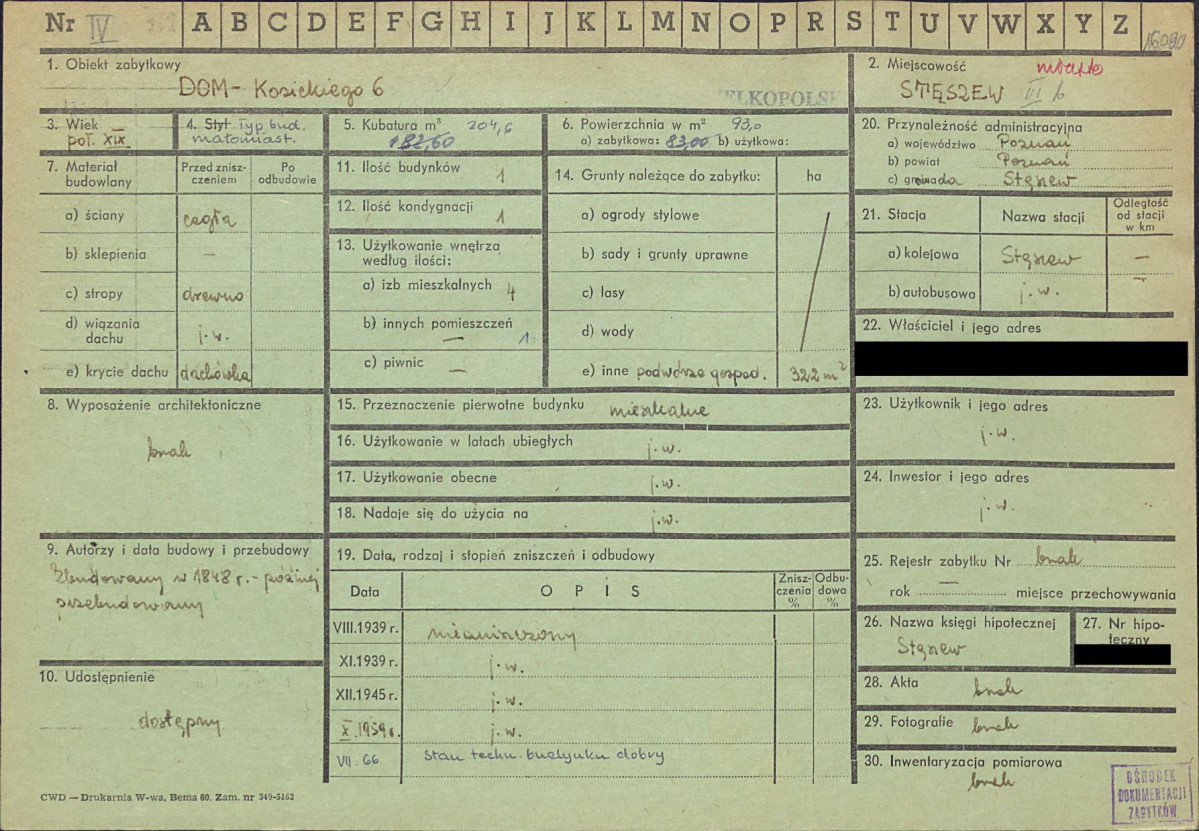 Nr IV A B C D E F G H I J K L M N O P R S T U V W X Y Z
1. Obiekt zabytkowy
DOM - Kosickiego 6
WIELKOPOLSK
2. Miejscowość
miasto
STĘSZEW III/6
3. Wiek
poł. XIX
4. Styl Typ bud.
małomiast.
5. Kubatura m³ 204,6
182,60
6. Powierzchnia w m² 93,0
a) zabytkowa: 83,00 b) użytkowa:
20. Przynależność administracyjna
a) województwo Poznań
b) powiat Poznań
c) gromada Stęszew
7. Materiał budowlany
Przed znisz-
czeniem
Po
odbudowie
a) ściany cegła
b) sklepienia —
c) stropy drewno
d) wiązania
dachu j.w.
e) krycie dachu dachówka
11. Ilość budynków 1
12. Ilość kondygnacji 1
13. Użytkowanie wnętrza
według ilości:
a) izb mieszkalnych 4
b) innych pomieszczeń
— 1
c) piwnic —
14. Grunty należące do zabytku: ha
a) ogrody stylowe
b) sady i grunty uprawne
c) lasy
d) wody
e) inne podwórze gospod. 322 m²
21. Stacja Nazwa stacji
Odległość
od stacji
w km
a) kolejowa Stęszew —
b) autobusowa j.w. —
22. Właściciel i jego adres
8. Wyposażenie architektoniczne
brak
15. Przeznaczenie pierwotne budynku mieszkalne
16. Użytkowanie w latach ubiegłych j.w.
17. Użytkowanie obecne j.w.
18. Nadaje się do użycia na j.w.
23. Użytkownik i jego adres
j.w.
24. Inwestor i jego adres
j.w.
9. Autorzy i data budowy i przebudowy
Zbudowany w 1848 r. - później
przebudowany
19. Data, rodzaj i stopień zniszczeń i odbudowy
Data OPIS
Znisz-
czenia
%
Odbu-
dowa
%
VIII.1939 r. niezniszczony
XI.1939 r. j.w.
XII.1945 r. j.w.
X.1959 r. j.w.
VII.66 Stan techn. budynku dobry
25. Rejestr zabytku Nr brak
rok — miejsce przechowywania
26. Nazwa księgi hipotecznej
Stęszew
27. Nr hipo-
teczny
10. Udostępnienie
dostępny
28. Akta brak
29. Fotografie brak
30. Inwentaryzacja pomiarowa
brak
CWD — Drukarnia W-wa, Bema 60. Zam. nr 349-5162
OŚRODEK
DOKUMENTACJI
ZABYTKÓW